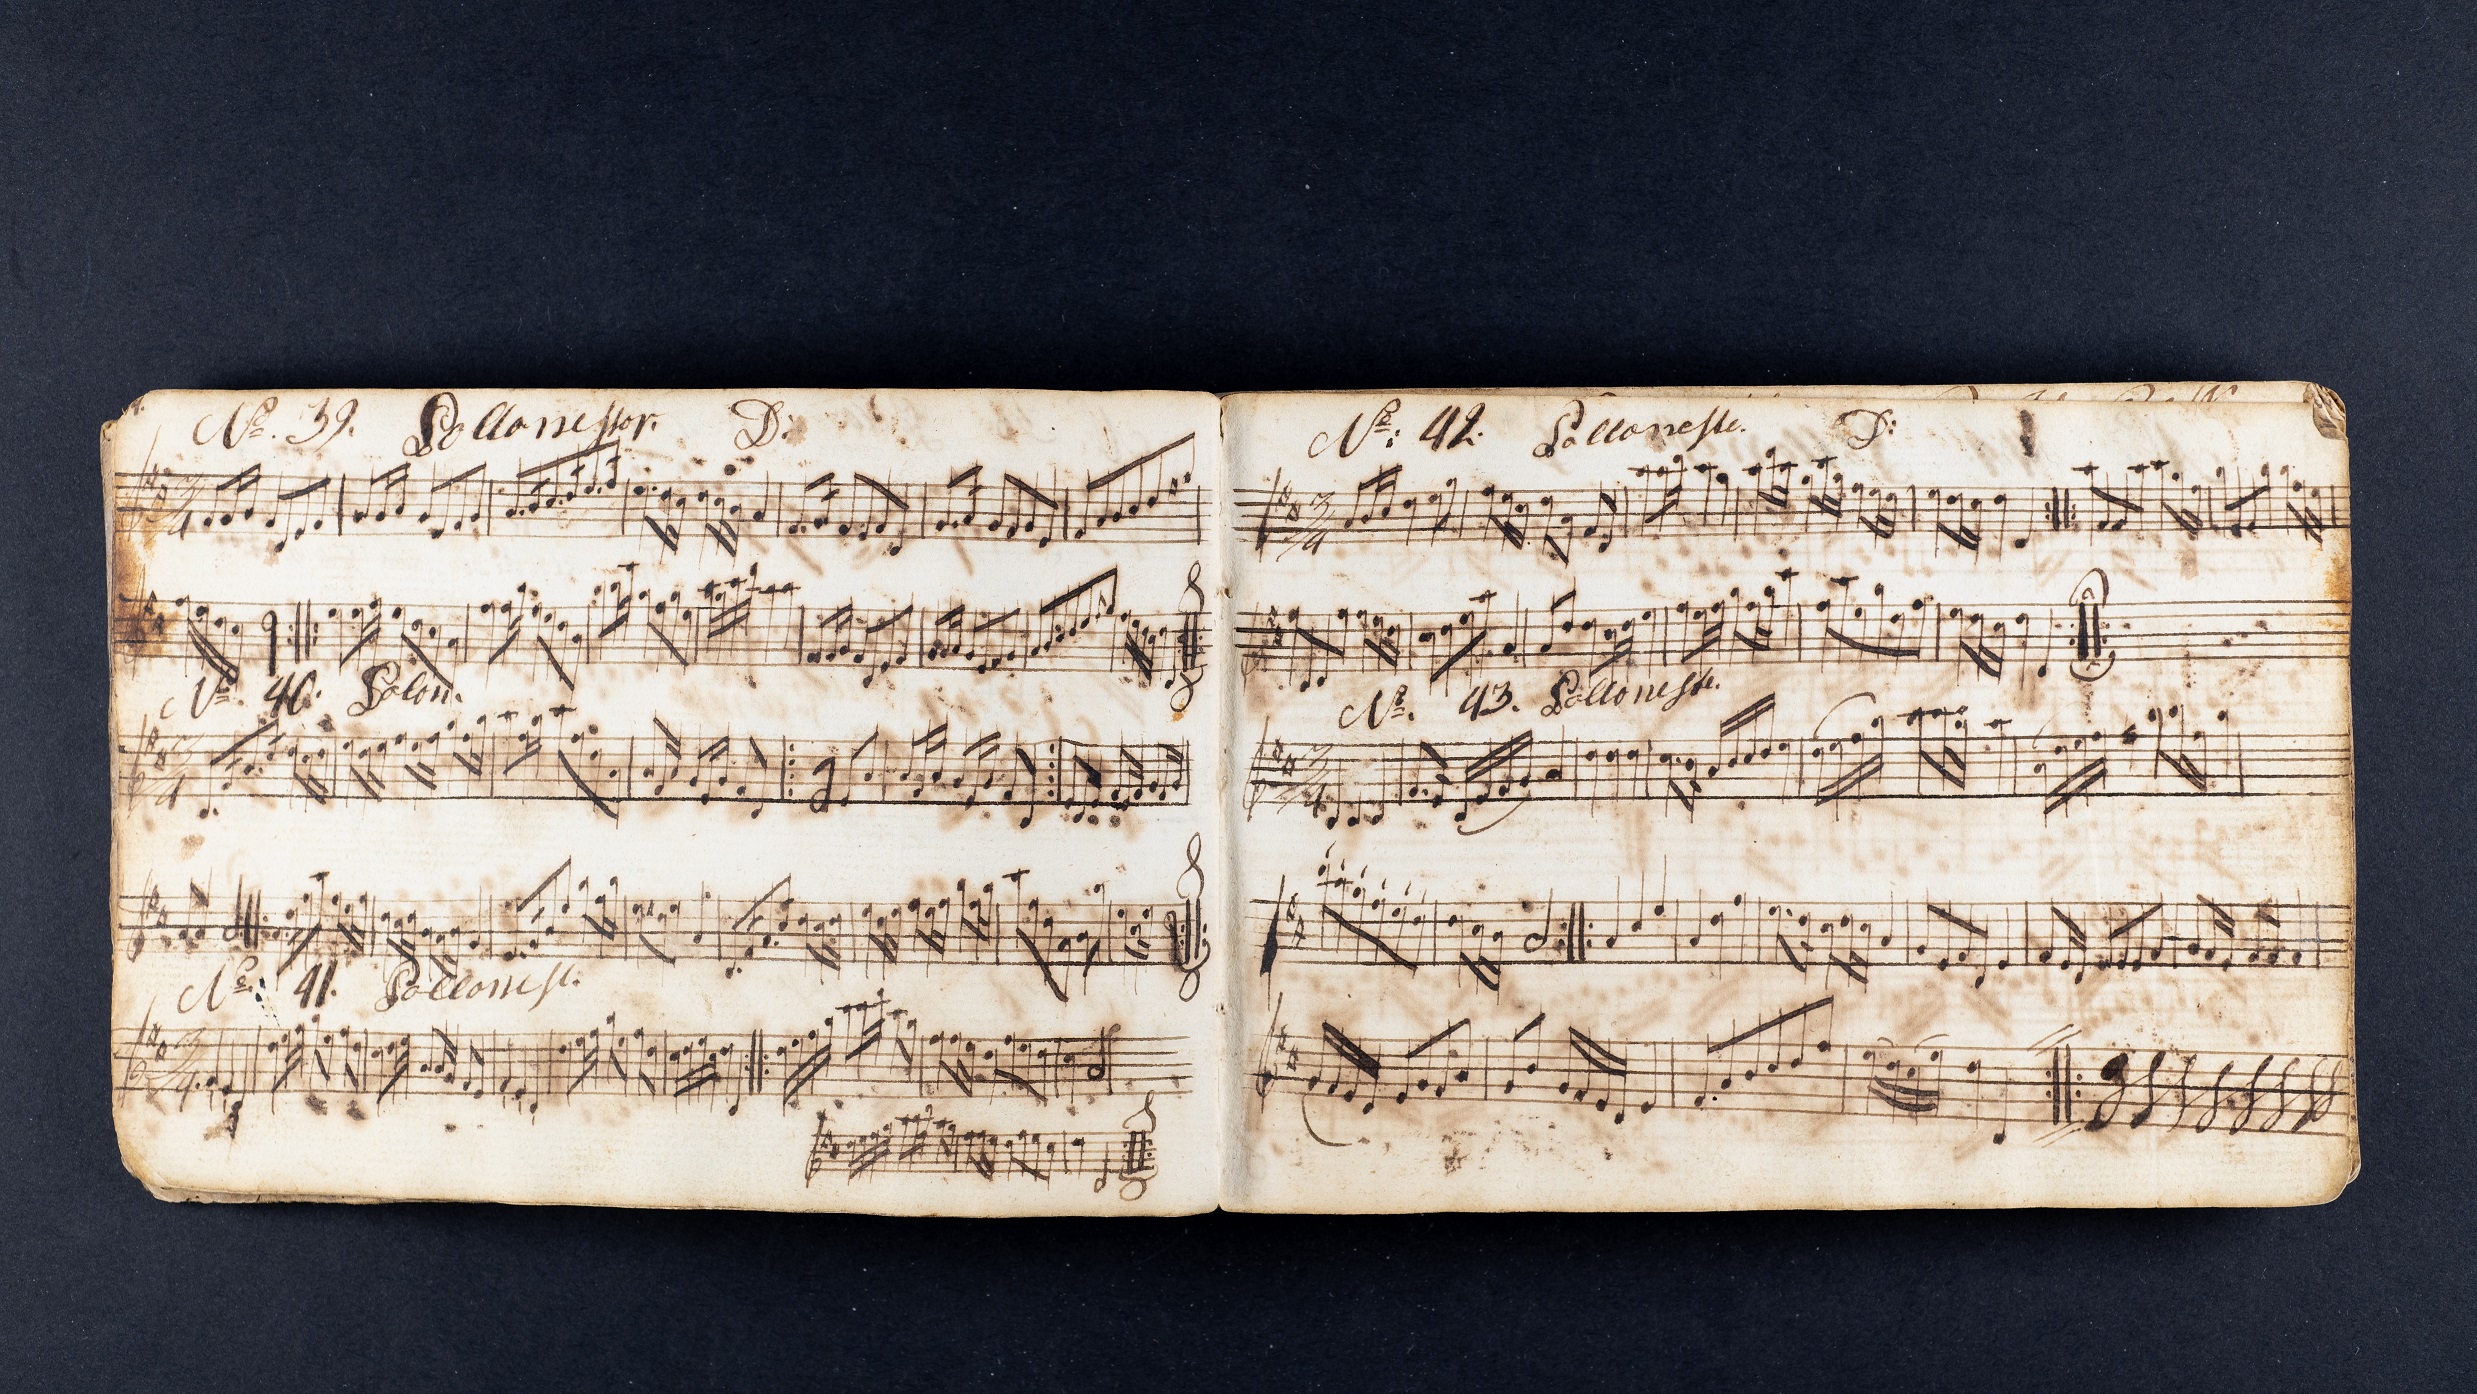 No. 39. Pollonesser. D:
No. 40. Polon.
No. 41. Pollonesse.
No: 42. Pollonesse. D:
No. 43. Pollonesse.